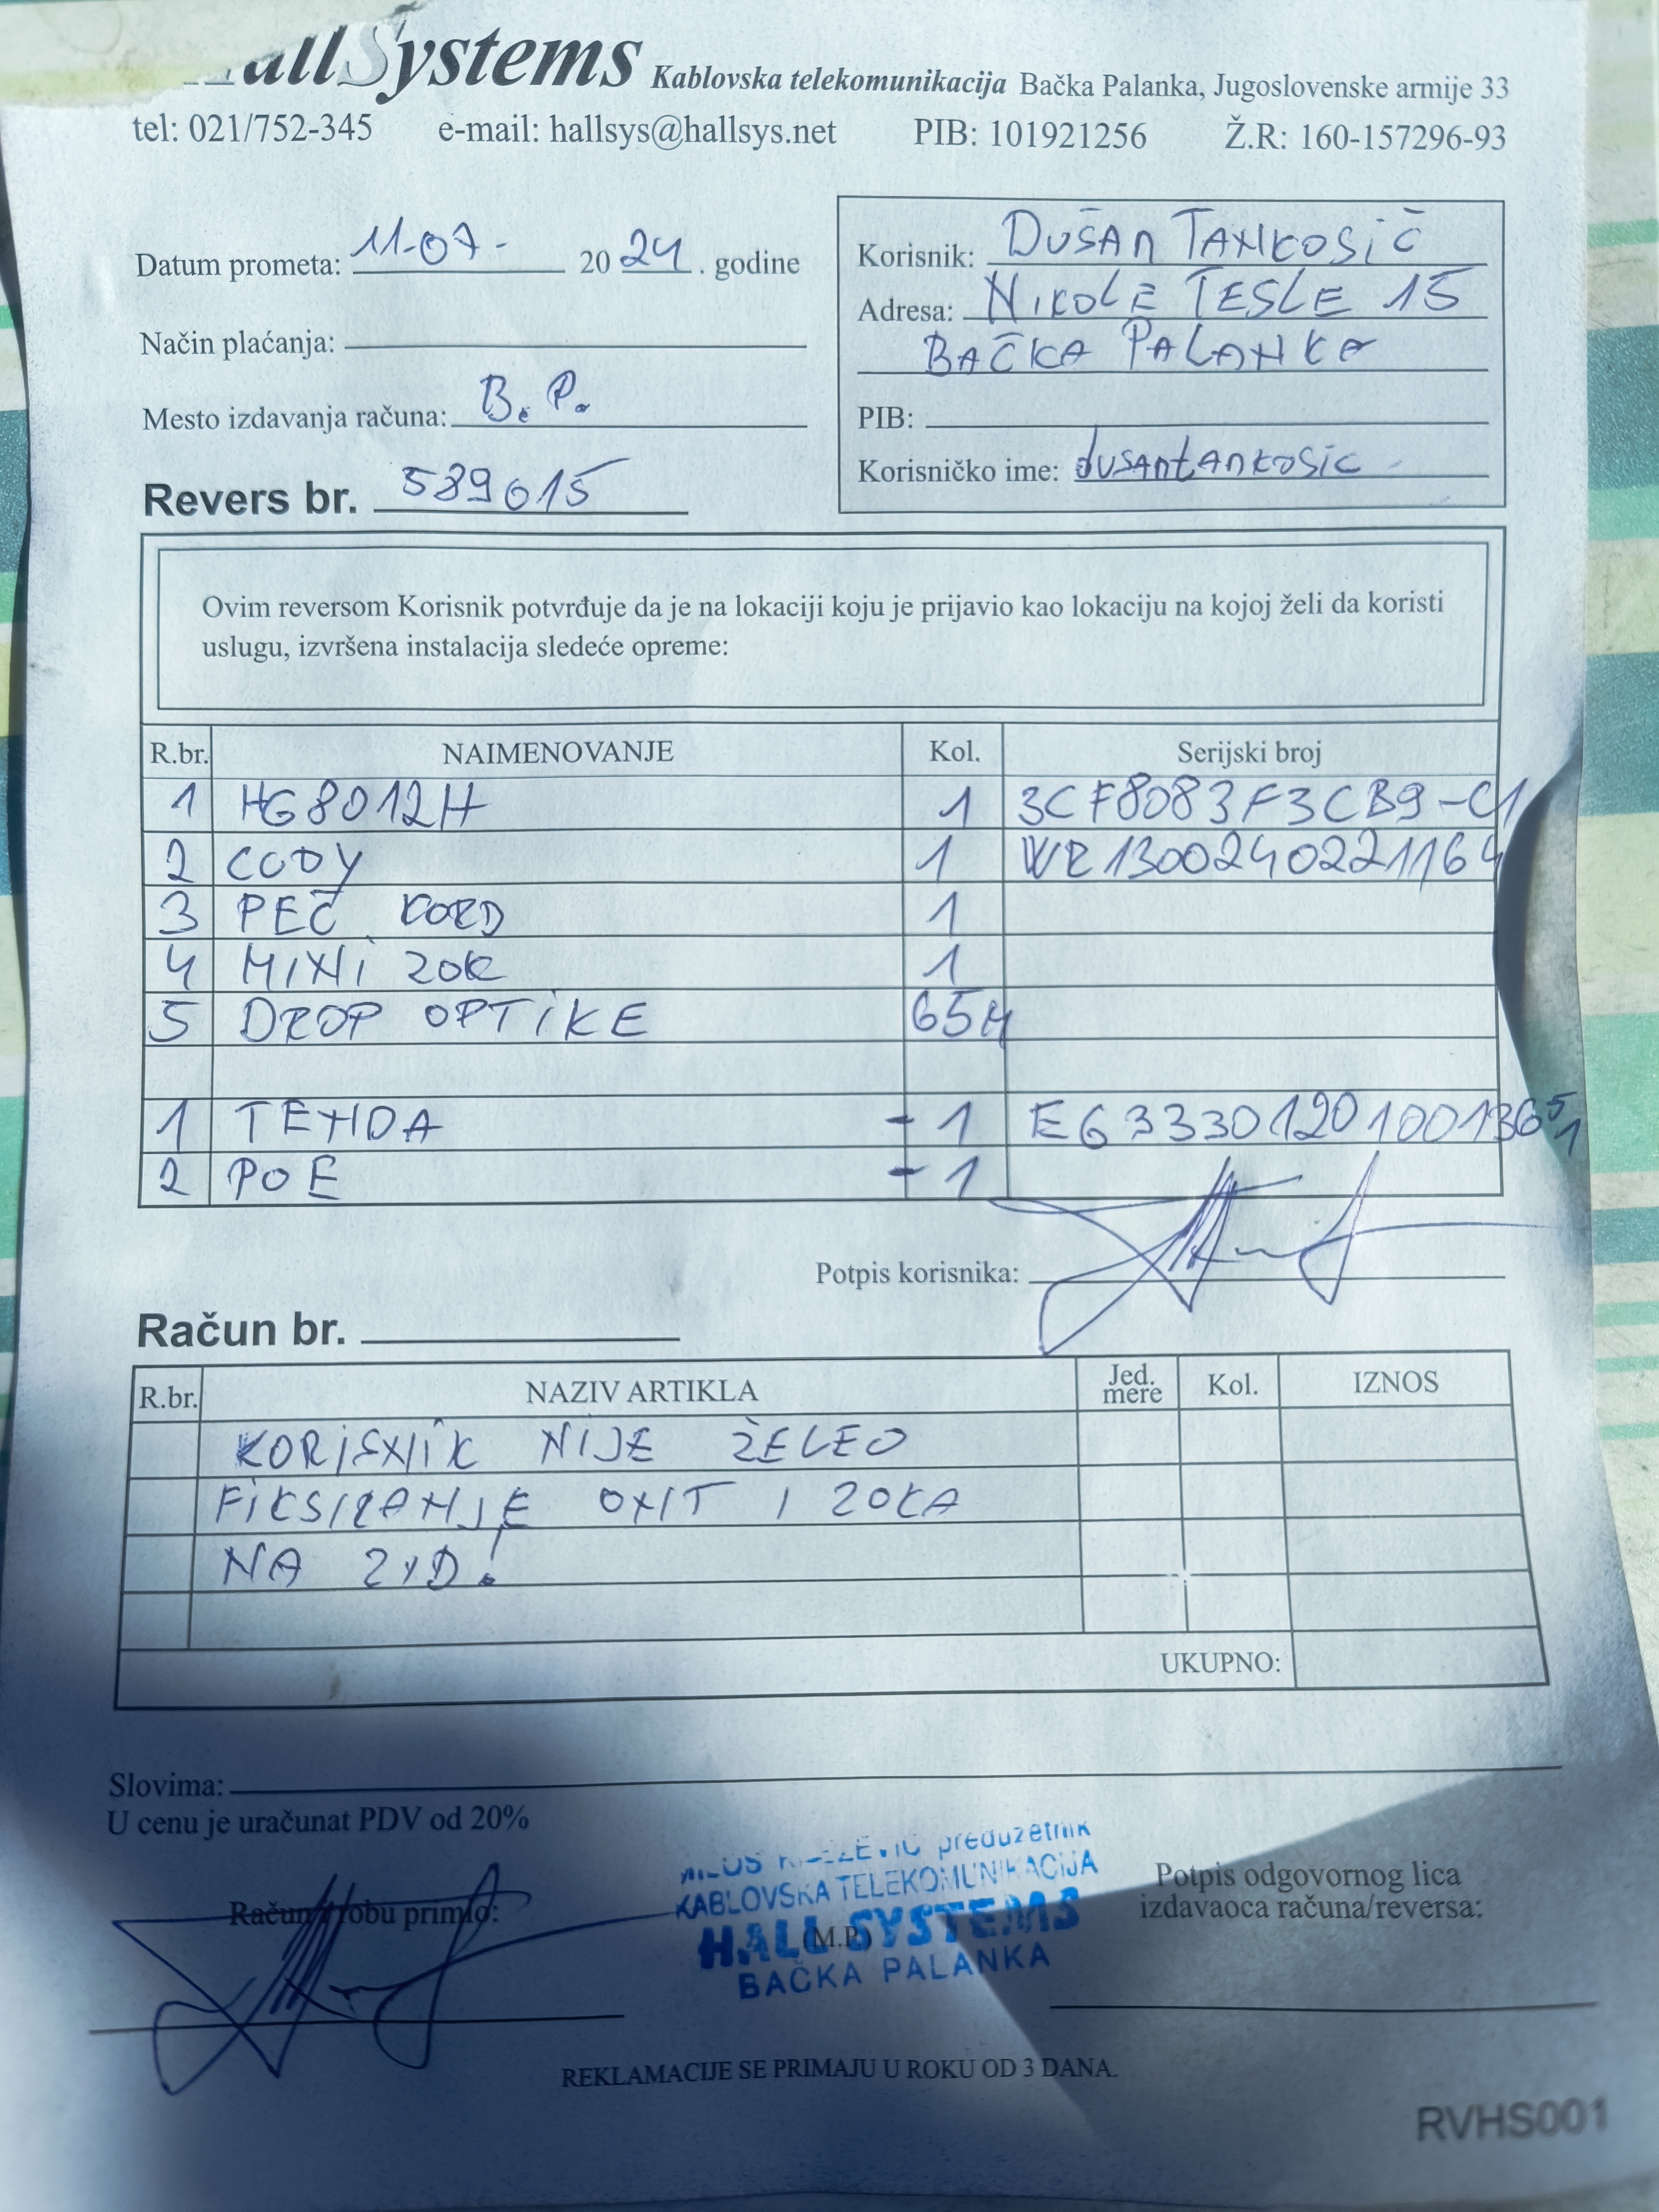 HallSystems Kablovska telekomunikacija Bačka Palanka, Jugoslovenske armije 33
tel: 021/752-345 e-mail: hallsys@hallsys.net PIB: 101921256 Ž.R: 160-157296-93
Datum prometa: 11-07- 2024. godine
Način plaćanja:
Mesto izdavanja računa: B. P.
Revers br. 589015
Korisnik: DUŠAN TANKOSIĆ
Adresa: NIKOLE TESLE 15
BAČKA PALANKA
PIB:
Korisničko ime: dusantankosic
Ovim reversom Korisnik potvrđuje da je na lokaciji koju je prijavio kao lokaciju na kojoj želi da koristi
uslugu, izvršena instalacija sledeće opreme:
R.br. NAIMENOVANJE Kol. Serijski broj
1 HG8012H 1 3CF8083F3CB9-C1
2 CODY 1 WR1300240221164
3 PEČ KORD 1
4 MINI ZOK 1
5 DROP OPTIKE 65M
1 TENDA -1 E6333012010013651
2 POE -1
Potpis korisnika:
Račun br.
R.br. NAZIV ARTIKLA Jed. mere Kol. IZNOS
KORISNIK NIJE ŽELEO
FIKSIRANJE ONT I ZOKA
NA ZID!
UKUPNO:
Slovima:
U cenu je uračunat PDV od 20%
preduzetnik
KABLOVSKA TELEKOMUNIKACIJA
HALL SYSTEMS
BAČKA PALANKA
Račun / robu primio:
(M.P.)
Potpis odgovornog lica
izdavaoca računa/reversa:
REKLAMACIJE SE PRIMAJU U ROKU OD 3 DANA.
RVHS001